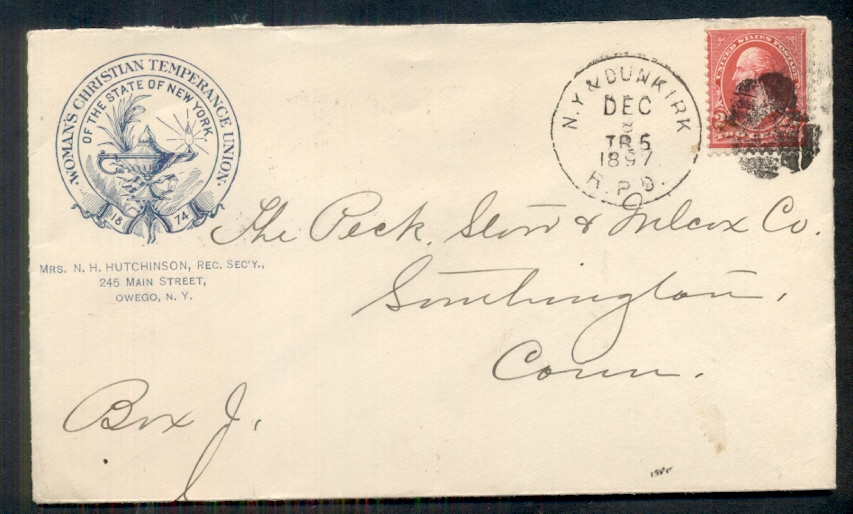 WOMAN'S CHRISTIAN TEMPERANCE UNION
OF THE STATE OF NEW YORK
1874
MRS. N. H. HUTCHINSON, REC. SEC'Y.,
245 MAIN STREET,
OWEGO, N. Y.
N.Y. & DUNKIRK
DEC
TR 5
1897
R.P.O.
UNITED STATES POSTAGE
The Peck, Stow & Wilcox Co.
Southington,
Conn.
Box J.